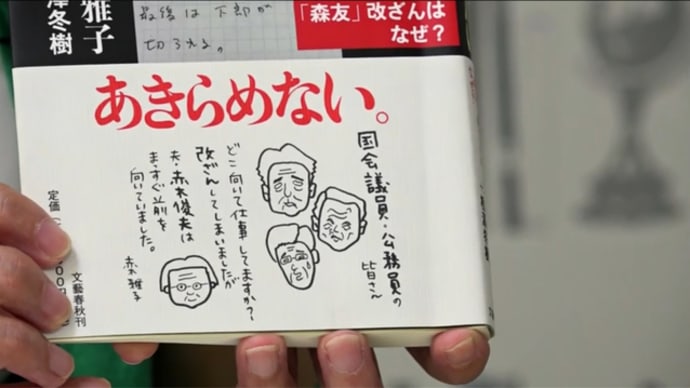 雅子
澤冬樹
最後は下部が
切られる。
「森友」改ざんは
なぜ?
あきらめない。
国会議員・公務員の
皆さん
どこ向いて仕事してますか?
改ざんしてしまいましたが
夫・赤木俊夫は
まっすぐ前を
向いていました。
赤木雅子
定価
文藝春秋刊